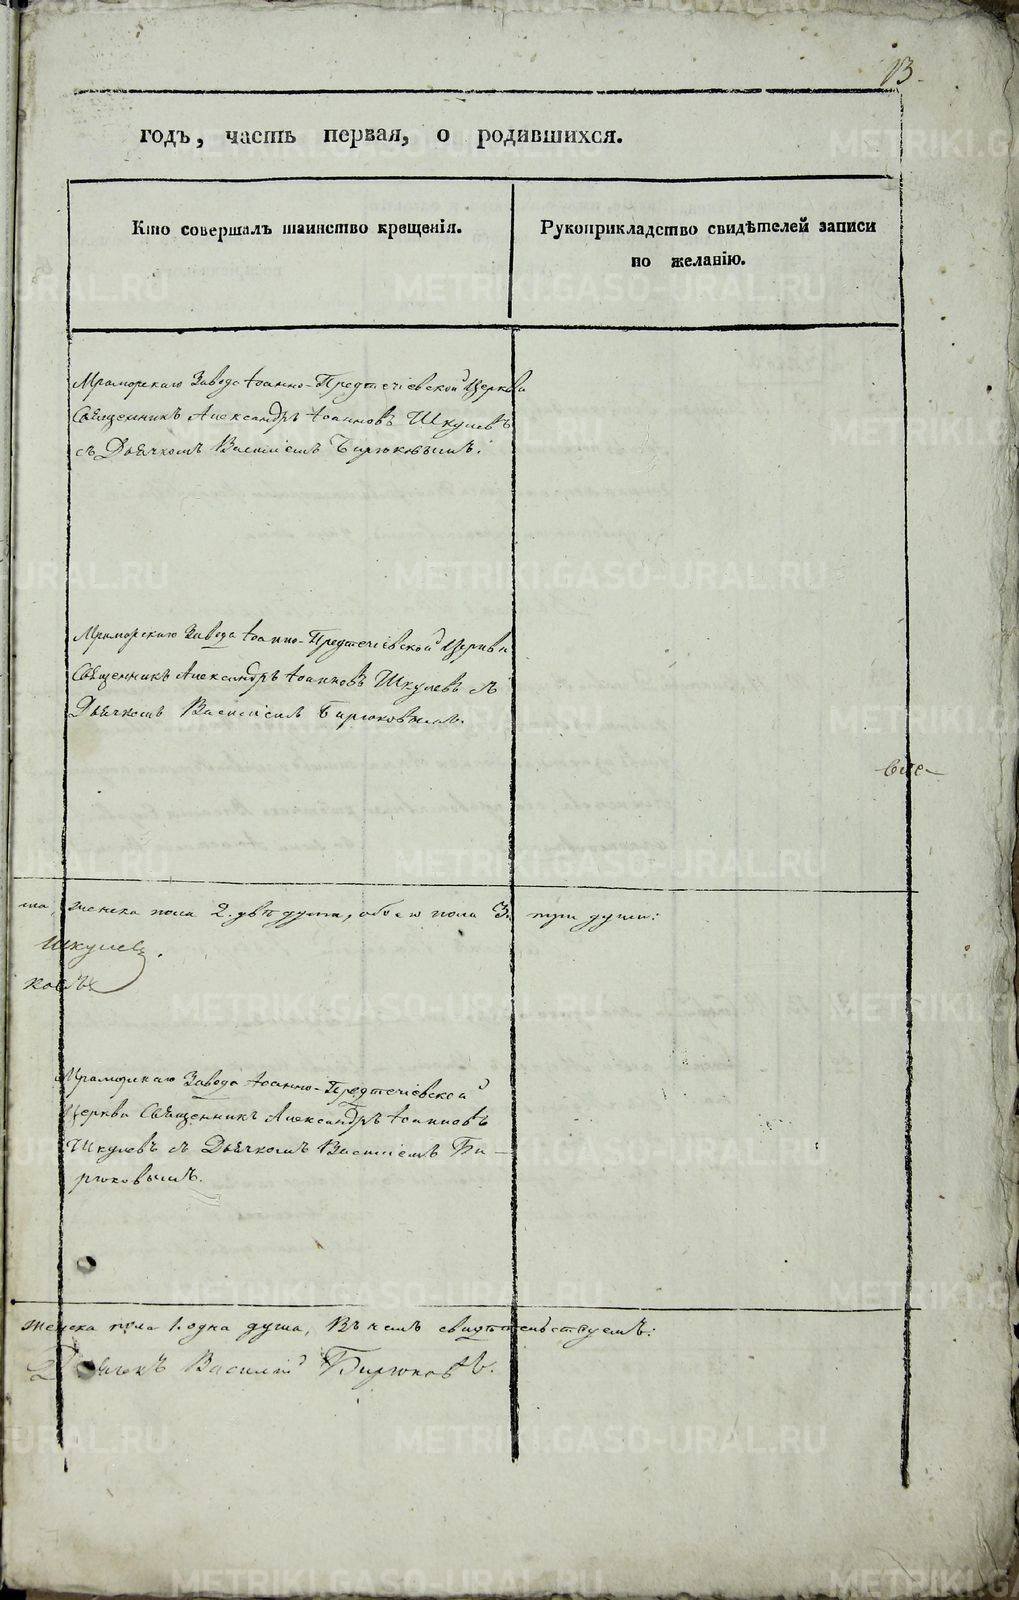 13.
годъ, часть первая, о родившихся.
Кто совершалъ таинство крещенія.
Рукоприкладство свидѣтелей записи
по желанію.
Мраморскаго Завода Іоанно-Предтечіевской Церкви
Священникъ Александръ Іоанновъ Шкулевъ
съ Дьячкомъ Василіемъ Бирюковымъ.
Мраморскаго Завода Іоанно-Предтечіевской Церкви
Священникъ Александръ Іоанновъ Шкулевъ съ
Дьячкомъ Василіемъ Бирюковымъ.
все-
женска пола 2. двѣ души, обоего пола 3. три души:
Шкулевъ.
ковъ
Мраморскаго Завода Іоанно-Предтечіевской
Церкви Священникъ Александръ Іоанновъ
Шкулевъ съ Дьячкомъ Василіемъ Би-
рюковымъ.
женска пола 1. одна душа, Въ чемъ свидѣтельствуемъ:
Дьячекъ Василій Бирюковъ.
METRIKI.GASO-URAL.RU